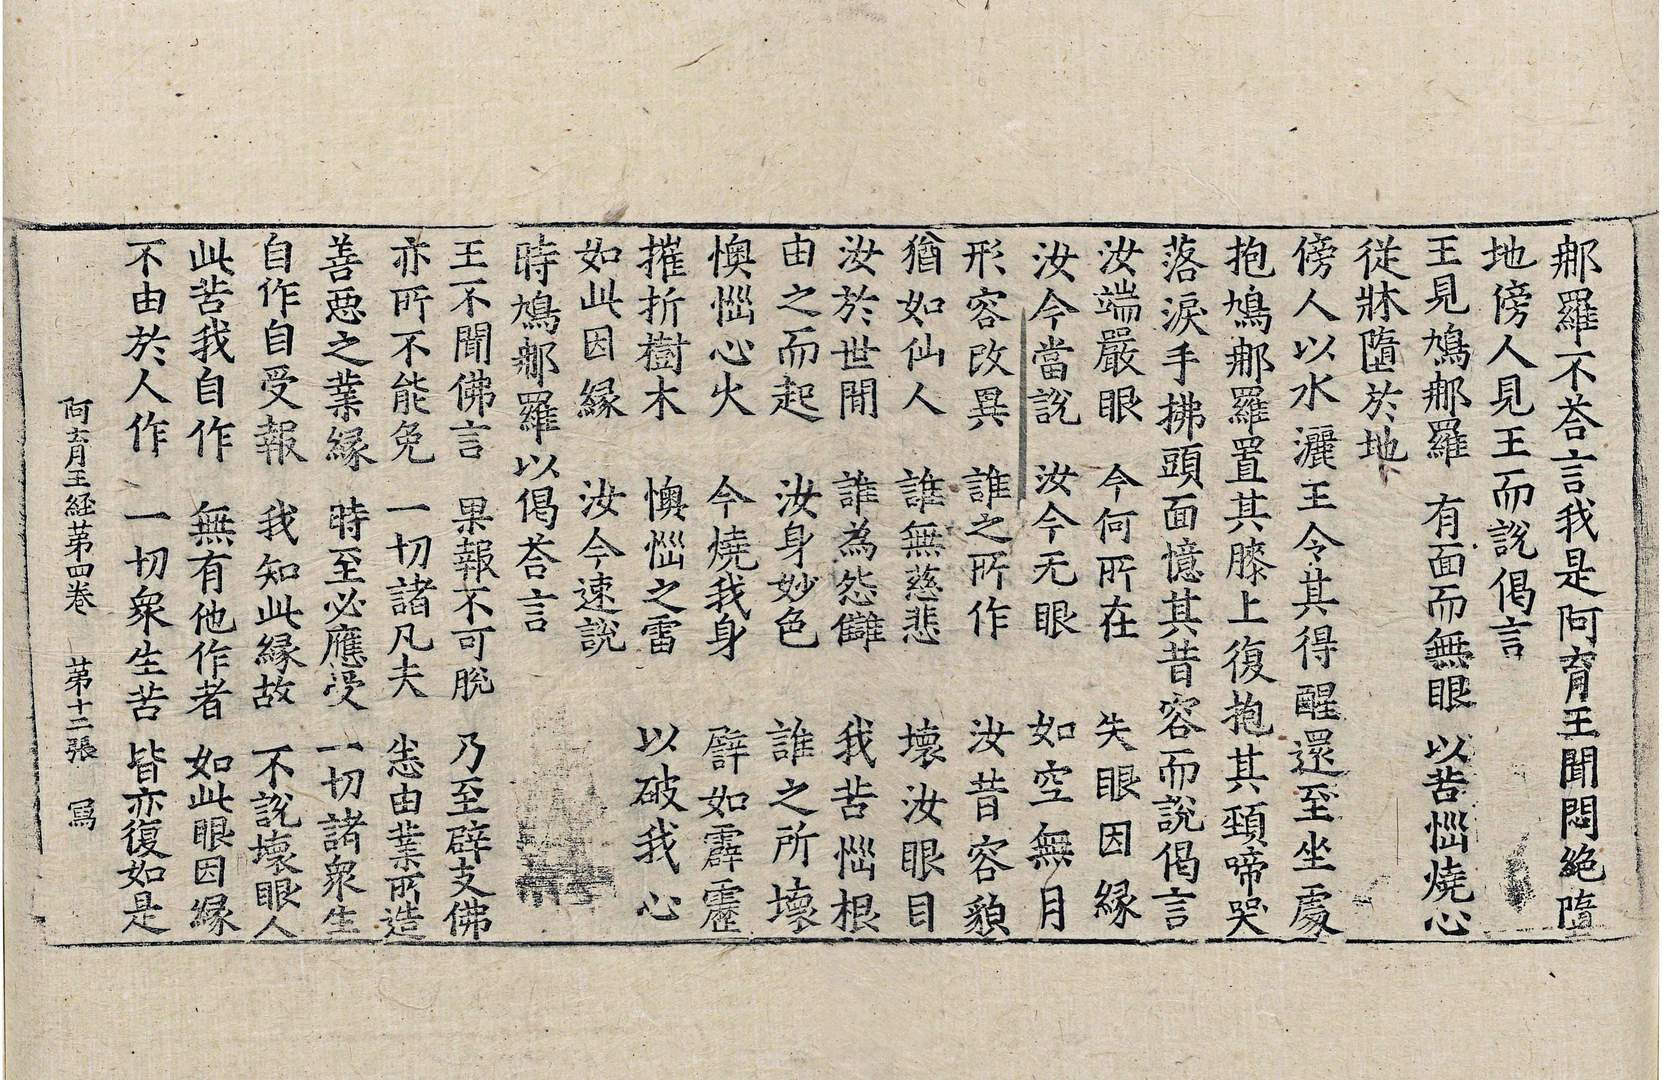 那羅不荅言我是阿育王聞悶絶墮
地傍人見王而說偈言
王見鳩那羅 有面而無眼 以苦惱燒心
從牀墮於地
傍人以水灑王令其得醒還至坐處
抱鳩那羅置其膝上復抱其頚啼哭
落淚手拂頭面憶其昔容而說偈言
汝端嚴眼 今何所在 失眼因縁
汝今當說 汝今无眼 如空無月
形容改異 誰之所作 汝昔容貌
猶如仙人 誰無慈悲 壞汝眼目
汝於世間 誰為怨讎 我苦惱根
由之而起 汝身妙色 誰之所壞
懊惱心火 今燒我身 譬如霹靂
摧折樹木 懊惱之雷 以破我心
如此因縁 汝今速說
時鳩那羅以偈荅言
王不聞佛言 果報不可脫 乃至辟支佛
亦所不能免 一切諸凡夫 悉由業所造
善惡之業縁 時至必應受 一切諸衆生
自作自受報 我知此縁故 不說壞眼人
此苦我自作 無有他作者 如此眼因縁
不由於人作 一切衆生苦 皆亦復如是
阿育王經第四卷 第十二張 寫